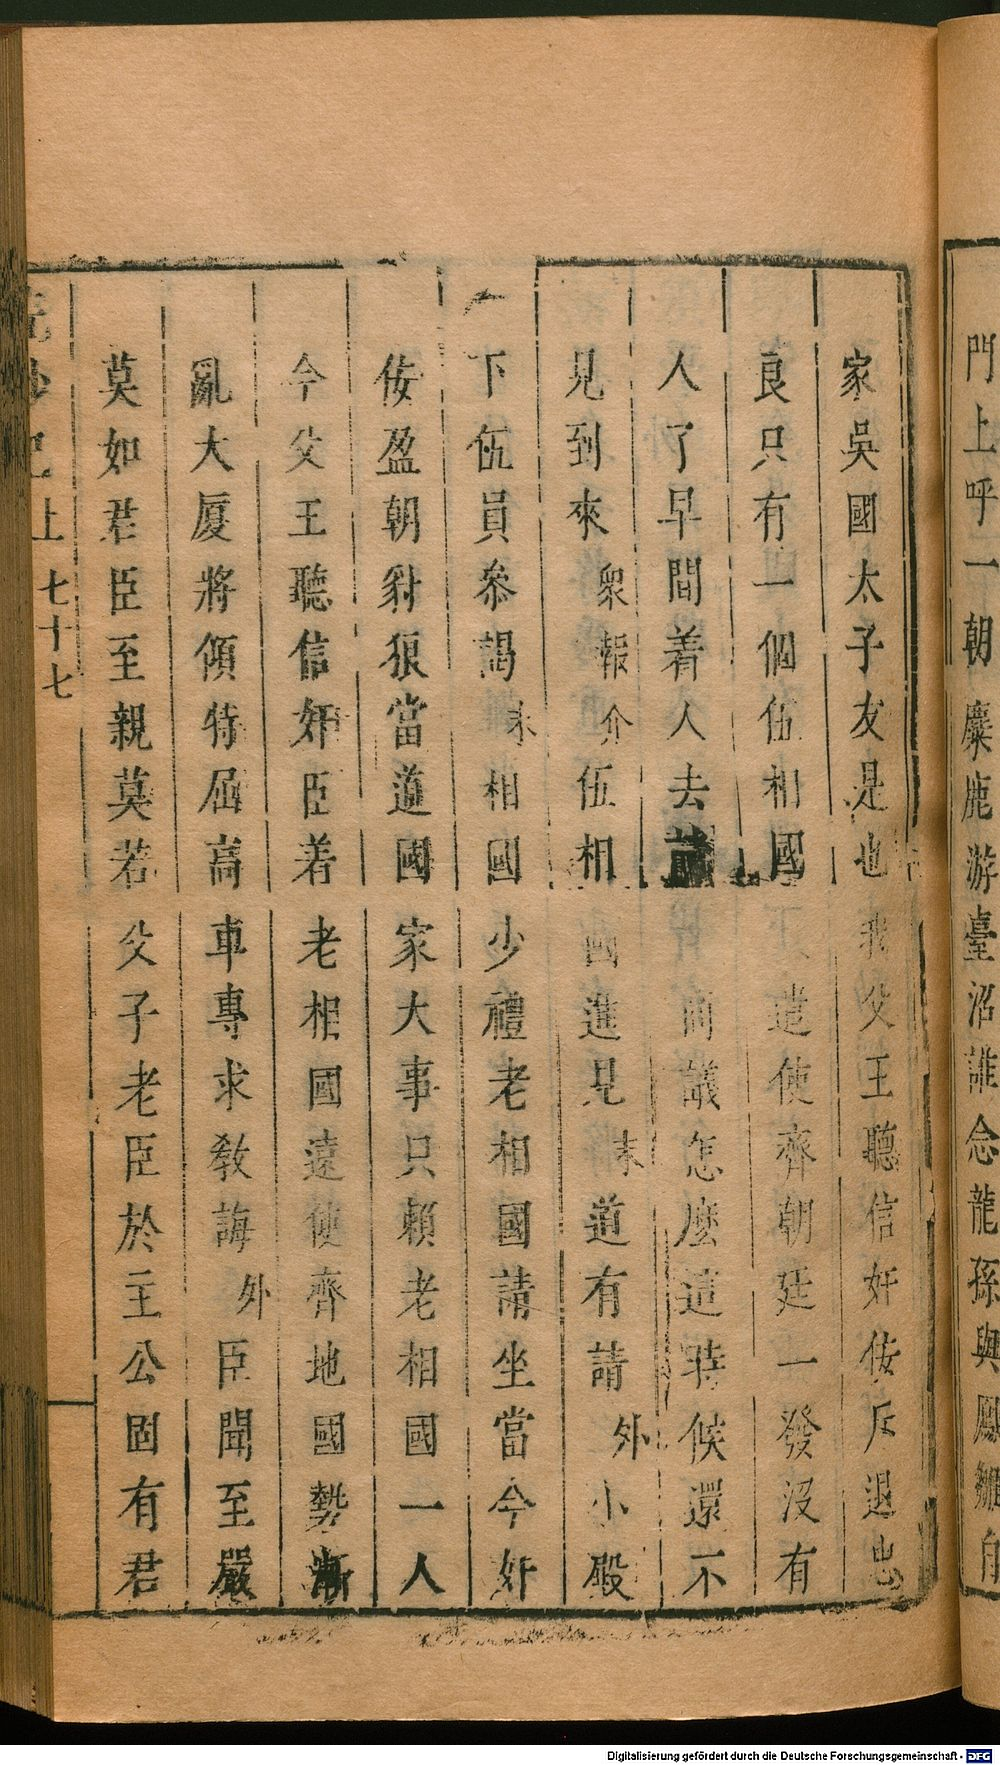 門上呼一朝麋鹿游臺沼誰念龍孫與鳳雛自
家吳國太子友是也我父王聽信奸佞斥退忠
良只有一個伍相國又遣使齊朝廷一發沒有
人了早間着人去請商議怎麼這時候還不
見到來衆報介伍相國進見末道有請外小殿
下伍員叅謁末相國少禮老相國請坐當今奸
佞盈朝豺狼當道國家大事只賴老相國一人
今父王聽信奸臣着老相國遠使齊地國勢漸
亂大厦將傾特屈高車專求教誨外臣聞至嚴
莫如君臣至親莫若父子老臣於主公固有君
浣紗記上 七十七
Digitalisierung gefördert durch die Deutsche Forschungsgemeinschaft - DFG